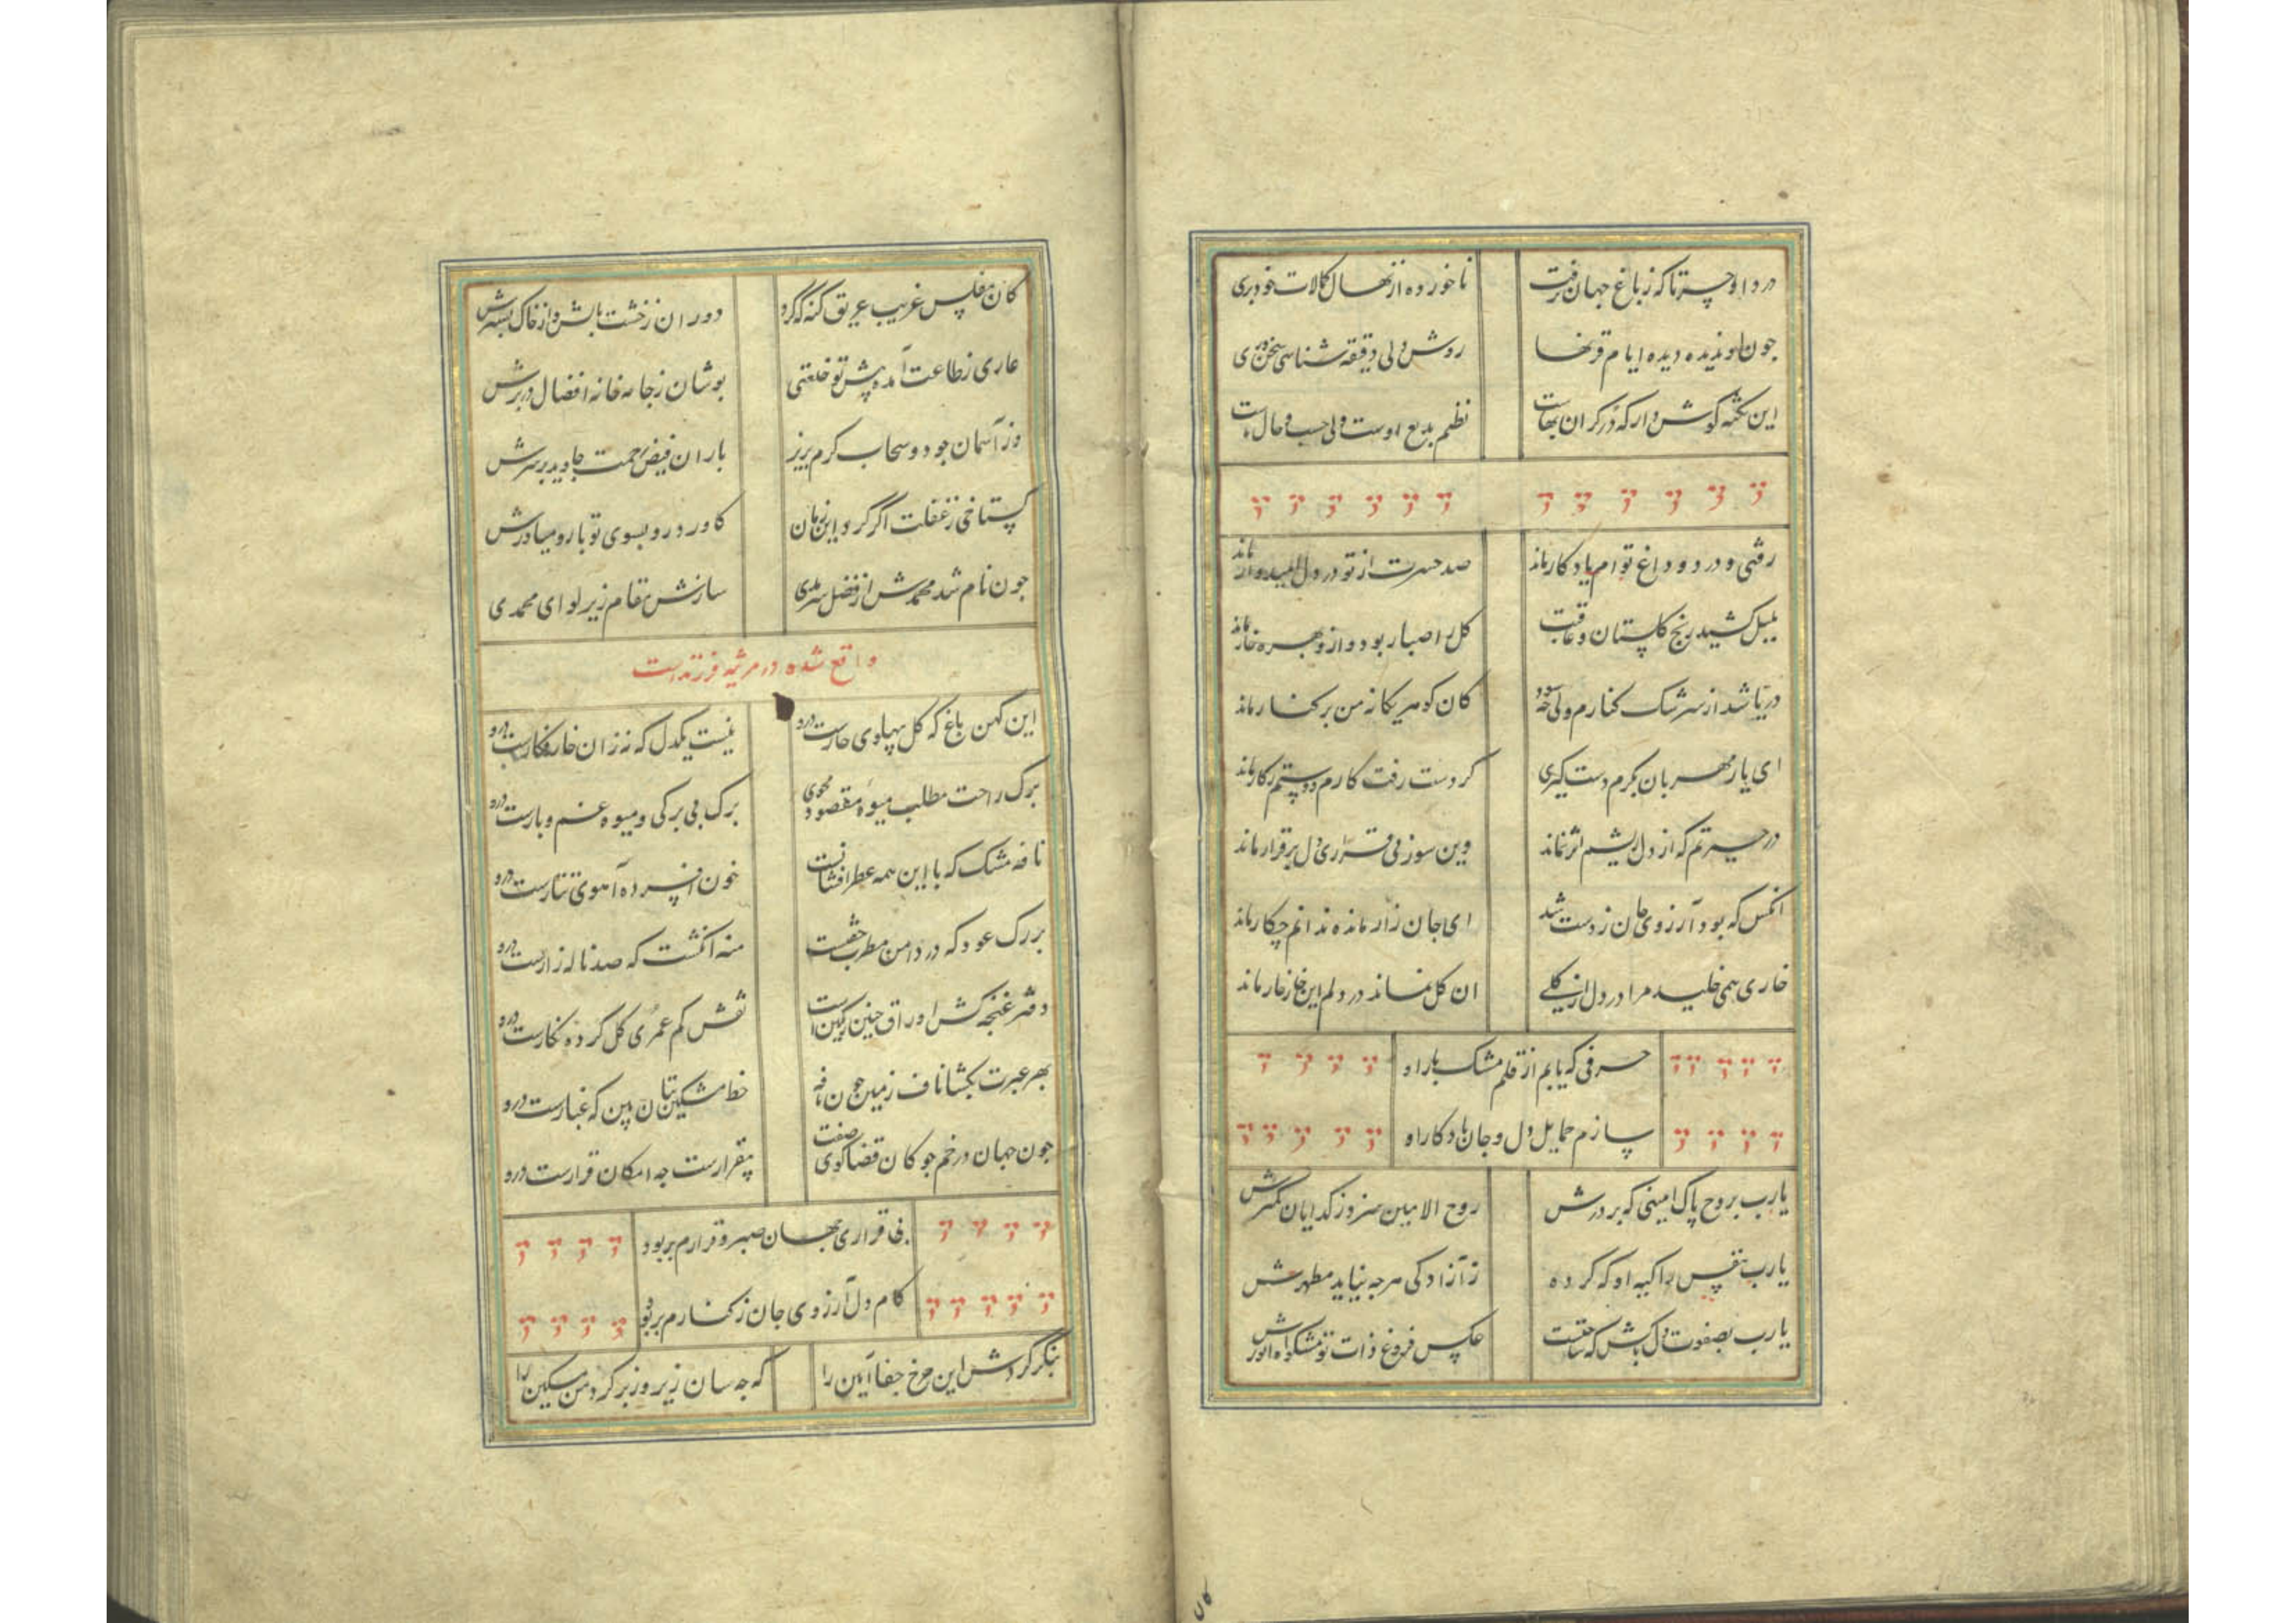 دردا و حسرتا که ز باغ جهان برفت
ناخورده از نهال کمالات خود بری
چون او ندیده دیده ایام قرنها
روشن دلی دقیقه شناسی سخن وری
این نکته گوش دار که در گران بهاست
نظم بدیع اوست ولی حسب حال ماست
رفتی و درد و داغ توام یادکار ماند
صد حسرت از تو در دل امیدوار ماند
بلبل کشید رنج کلستان و عاقبت
کل را صبا ربود و ازو بهره خار ماند
دریا شد از سرشک کنارم ولی چه سود
کان کوهر یکانه من بر کنار ماند
ای یار مهربان بکرم دست کیری
کز دست رفت کارم و دستم ز کار ماند
در حیرتم که از دل ریشم اثر نماند
وین سوز و بی قراری دل برقرار ماند
انکس که بود آرزوی جان ز دست شد
ای جان زار مانده ندانم چکار ماند
خاری همی خلید مرا در دل از کلی
ان کل نماند در دلم این خار خار ماند
حرفی که یابم از قلم مشک بار او
سازم حمایل دل و جان یادکار او
یارب بروح پاک امینی که بر درش
روح الامین سزد ز کدایان کمترش
یارب بنفس زاکیه او که کرده
ز آزادکی هرچه نیاید مطهرش
یارب بصفوت دل پاکش که ساختست
عکس فروغ ذات تو مشکوة انورش
کان مفلس غریب غریق کنه که کرد
دوران ز خشت بالش و از خاک بسترش
عاری ز طاعت آمده پیش تو خلعتی
پوشان ز جامه خانه افضال در برش
وز آسمان جود و سحاب کرم بریز
باران فیض رحمت جاوید بر سرش
کستاخی ز غفلت اگر کرد این زمان
کاورد رو بسوی تو با رو میاورش
چون نام شد محمدش از فضل سرمدی
سازش مقام زیر لوای محمدی
واقع شده در مرثیه فرزندست
این کهن باغ که کل پهلوی خارست درو
نیست یکدل که نه زان خار فکارست درو
برک راحت مطلب میوه مقصود مجوی
برک بی برکی و میوه غم و بارست درو
نافه مشک که با این همه عطر افشانیست
خون افسرده آهوی تتارست درو
بر رک عود که در دامن مطرب خفتست
منه انکشت که صد ناله زارست درو
دفتر غنچه کش اوراق چنین رنکین است
نقش کم عمری کل کرده نکارست درو
بهر عبرت بکشا ناف زمین چون نافه
خط مشکین بتان بین که غبارست درو
چون جهان در خم چوکان قضا کوی صفت
بیقرارست چه امکان قرارست درو
بی قراری جهان صبر و قرارم بربود
کام دل آرزوی جان ز کنارم بربود
بنکر کردش این چرخ جفا آیین را
که چه سان زیر و زبر کرد من مسکین را